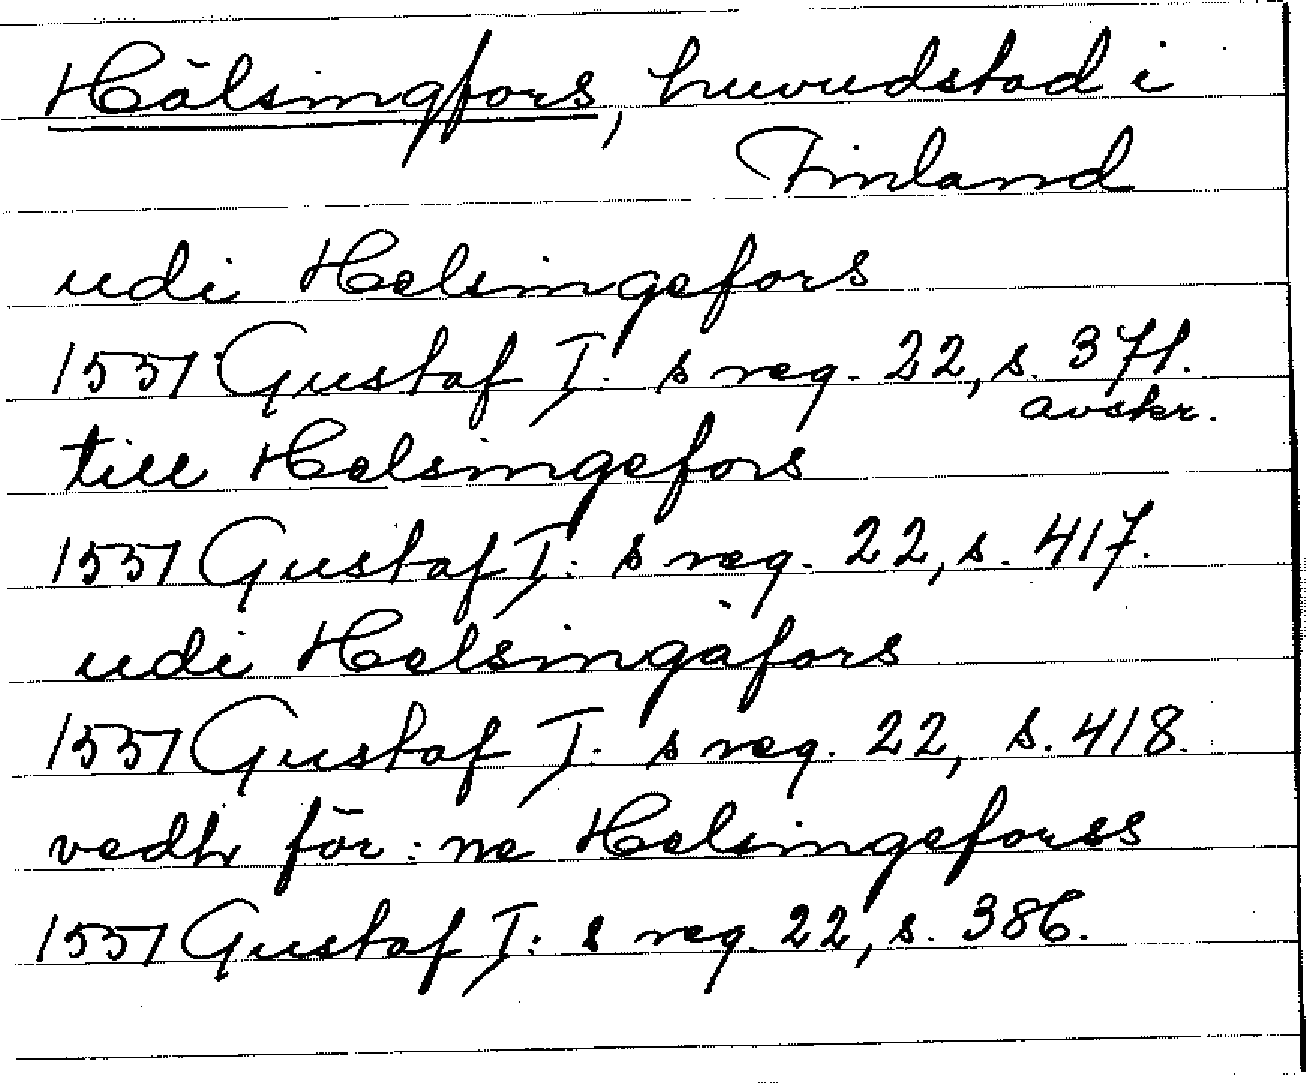 Hälsingfors, huvudstad i
Finland
udi Helsingefors
1551 Gustaf I: s reg. 22, s. 371.
avskr.
till Helsingefors
1551 Gustaf I: s reg. 22, s. 417.
udi Helsingafors
1551 Gustaf I: s reg. 22, s. 418.
vedh för: ne Helsingeforss
1551 Gustaf I: s reg. 22, s. 386.